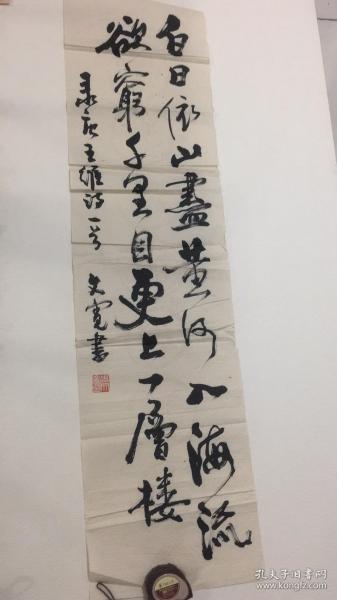 白日依山盡黄河入海流
欲窮千里目更上一層楼
录唐王維诗一首
文寛書
孔夫子旧书网
www.kongfz.com